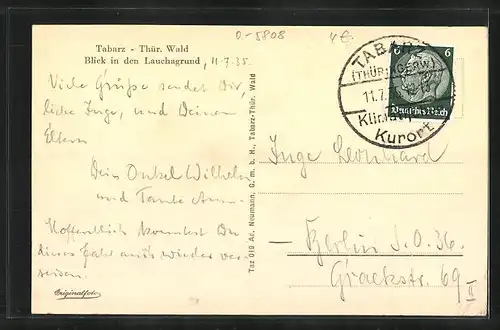 0-5808
4€
Tabarz - Thür. Wald
Blick in den Lauchagrund, 11.7.35
Viele Grüße sendet Dir,
liebe Inge, und Deinen
Eltern
Dein Onkel Wilhelm
und Tante Anna
Hoffentlich kommst Du
dieses Jahr auch wieder
Originalfoto
Taz 010 Ad. Neumann, G. m. b. H., Tabarz-Thür. Wald
TABARZ
(THÜRINGERW)
11.7.
Kurort
6 6
Deutsches Reich
Inge Leonhard
Berlin S.O. 36.
69 II